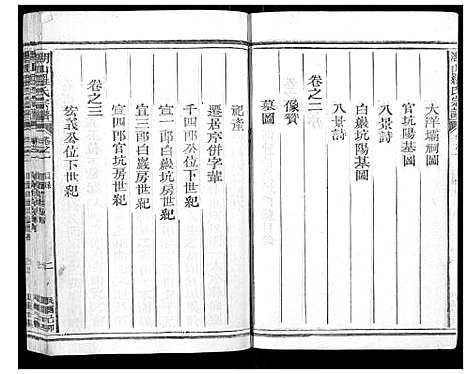 大洋壩祠圖
官坑陽基圖
八景詩
白巖坑陽基圖
八景詩
卷之二
像贊
墓圖
祀產
遷居序併字輩
千四公位下世紀
宣四郎官坑房世紀
宣三郎白巖坑房世紀
卷之三
宏義公位下世紀